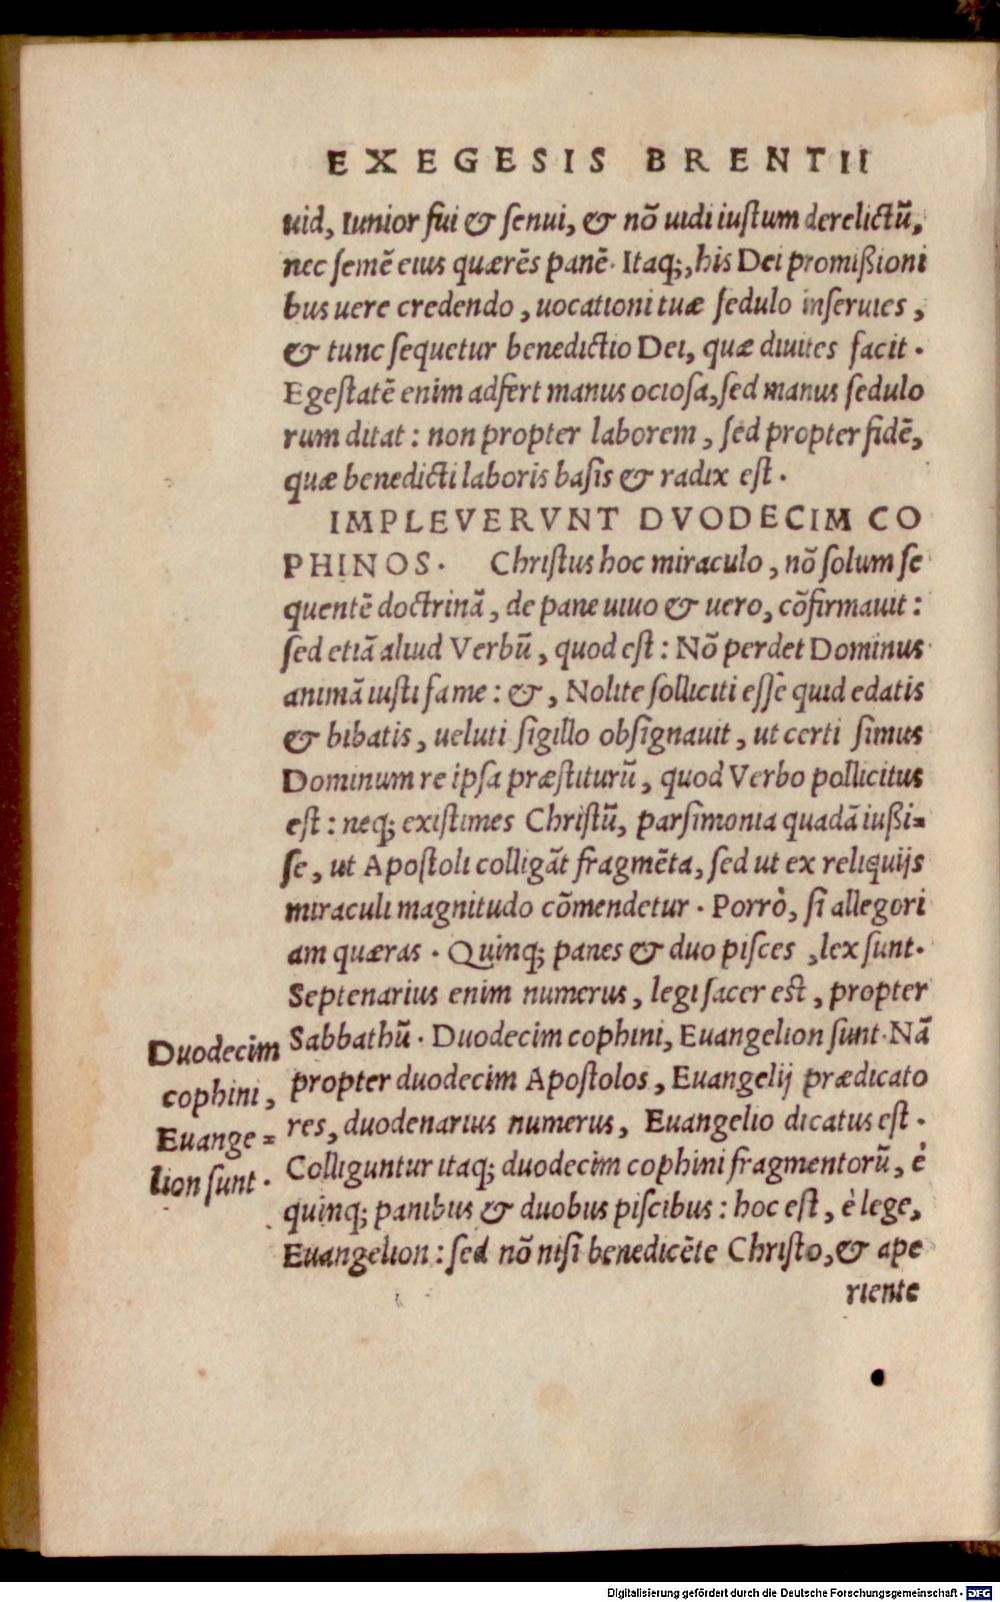 EXEGESIS BRENTII
uid, Iunior fui & ſenui, & nõ uidi iuſtum derelictũ,
nec ſemẽ eius quærẽs panẽ. Itaq;, his Dei promißioni
bus uere credendo, uocationi tuæ ſedulo inſeruies,
& tunc ſequetur benedictio Dei, quæ diuites facit.
Egeſtatẽ enim adfert manus ocioſa, ſed manus ſedulo
rum ditat: non propter laborem, ſed propter fidẽ,
quæ benedicti laboris baſis & radix eſt.
IMPLEVERVNT DVODECIM CO
PHINOS. Chriſtus hoc miraculo, nõ ſolum ſe
quentẽ doctrinã, de pane uiuo & uero, cõfirmauit:
ſed etiã aliud Verbũ, quod eſt: Nõ perdet Dominus
animã iuſti fame: &, Nolite ſolliciti eſſe quid edatis
& bibatis, ueluti ſigillo obſignauit, ut certi ſimus
Dominum re ipſa præſtiturũ, quod Verbo pollicitus
eſt: neq; exiſtimes Chriſtũ, parſimonia quadã iußi=
ſe, ut Apoſtoli colligãt fragmẽta, ſed ut ex reliquijs
miraculi magnitudo cõmendetur. Porrò, ſi allegori
am quæras. Quinq; panes & duo piſces, lex ſunt.
Septenarius enim numerus, legi ſacer eſt, propter
Sabbathũ. Duodecim cophini, Euangelion ſunt. Nã
propter duodecim Apoſtolos, Euangelij prædicato
res, duodenarius numerus, Euangelio dicatus eſt.
Colliguntur itaq; duodecim cophini fragmentorũ, è
quinq; panibus & duobus piſcibus: hoc eſt, è lege,
Euangelion: ſed nõ niſi benedicẽte Chriſto, & ape
riente
Duodecim
cophini,
Euange=
lion ſunt.
Digitalisierung gefördert durch die Deutsche Forschungsgemeinschaft - DFG